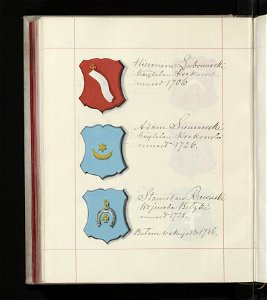 Hieronim Lubomirski
kasztelan krakowski
umarł 1706
Adam Sieniawski
kasztelan krakowski
umarł 1726.
Stanisław Rzewuski
wojewoda Bełzki
umarł 1728.